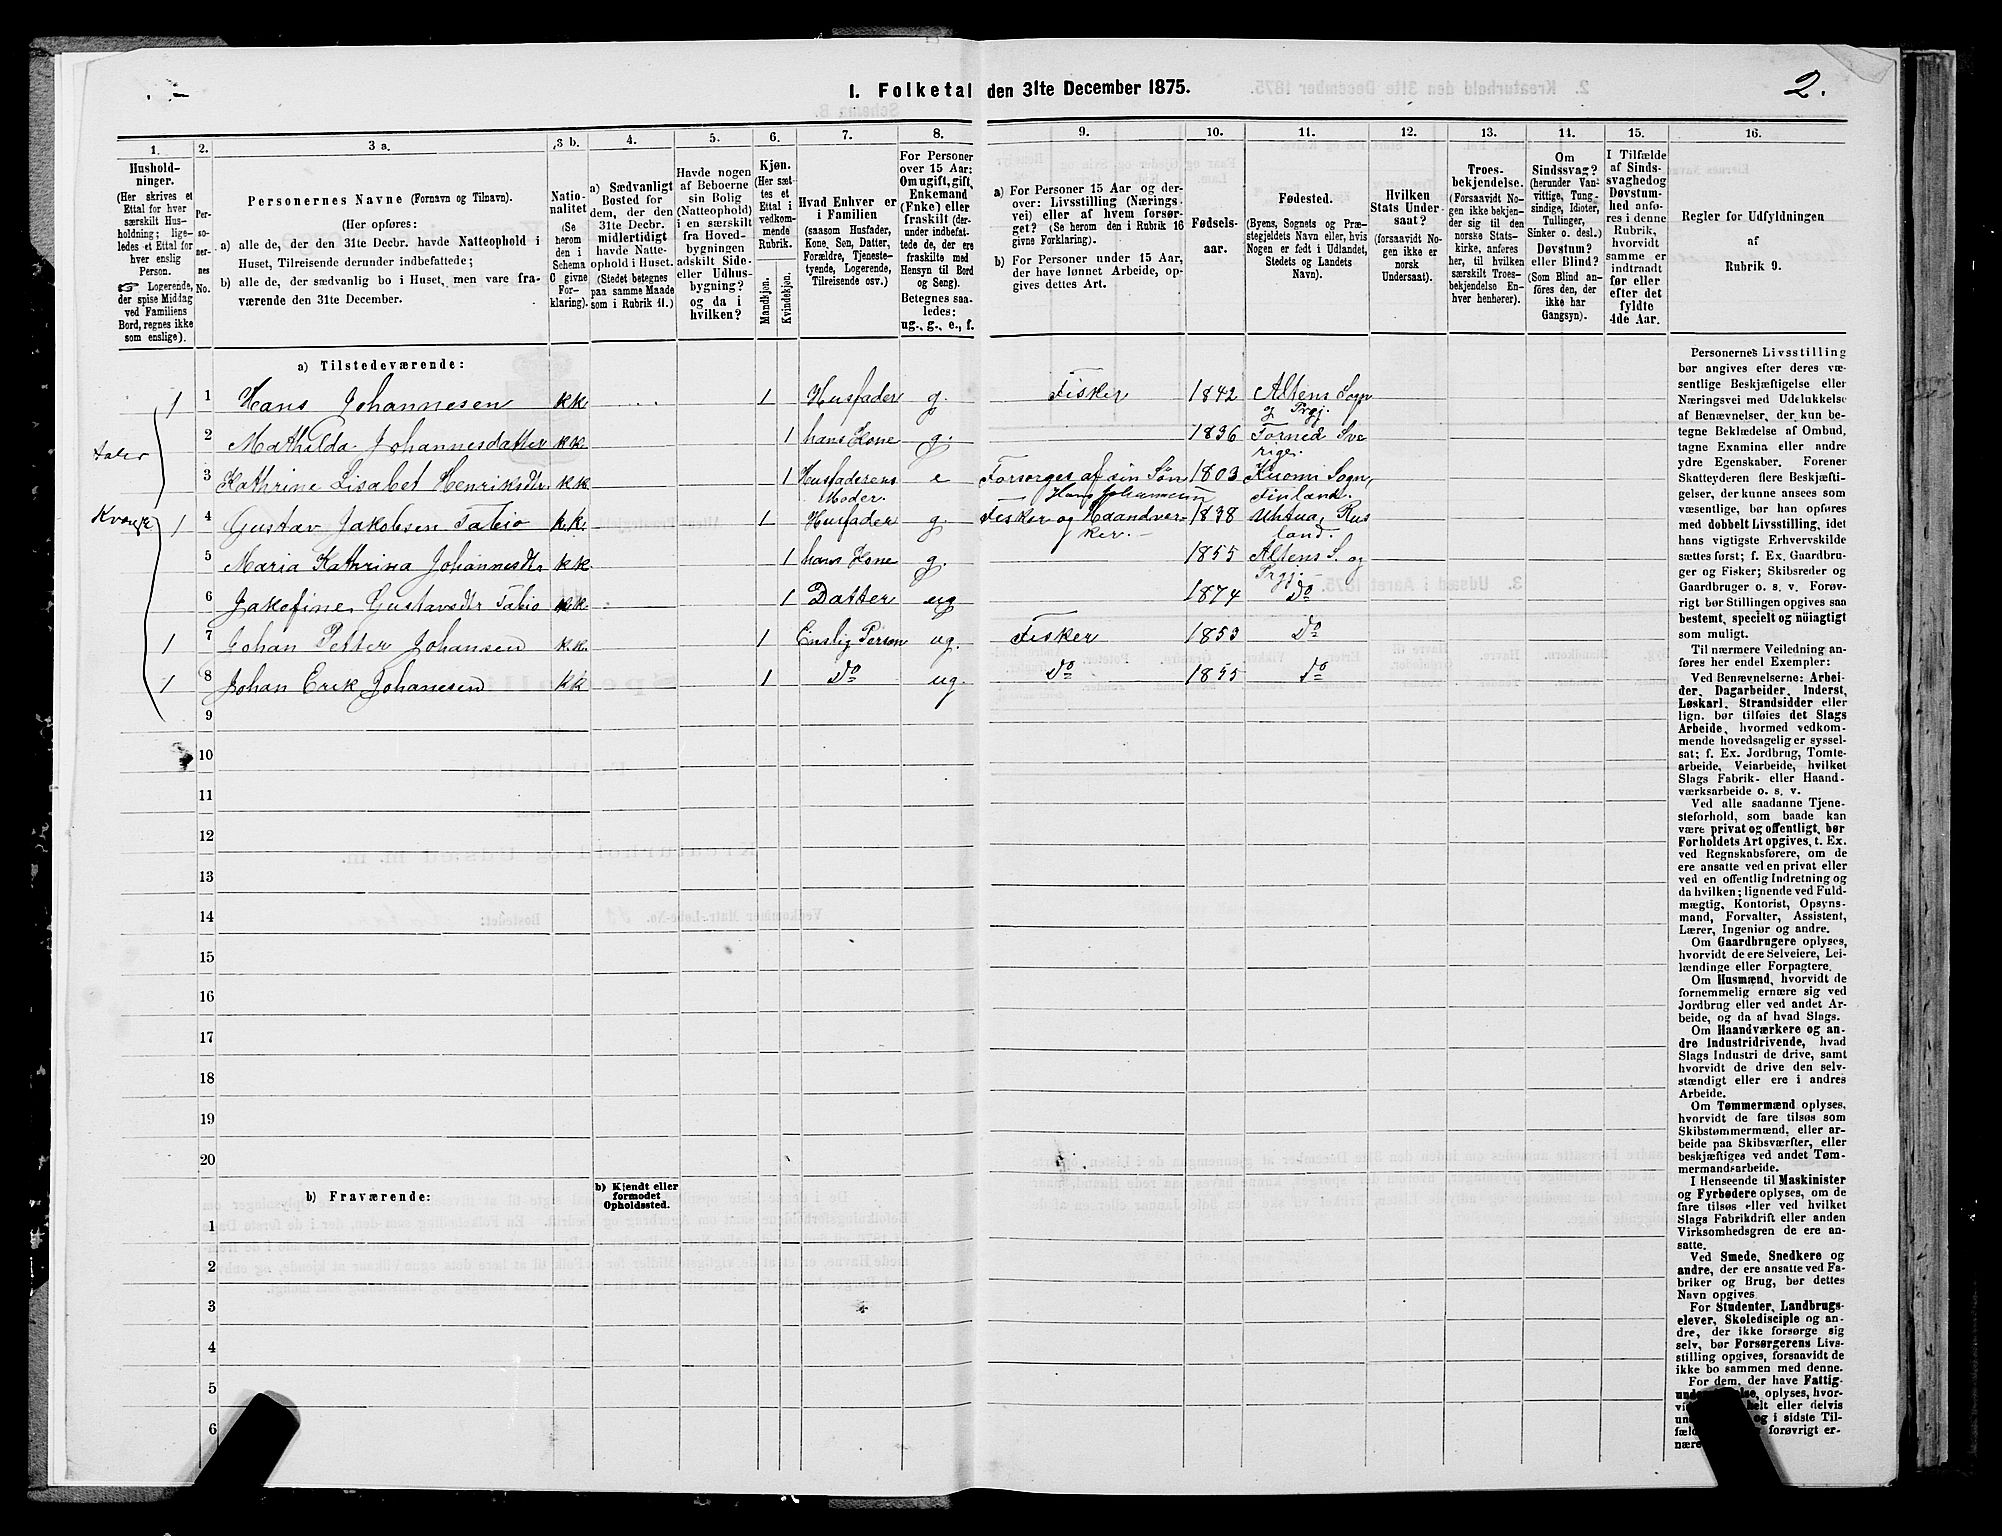 I. Folketal den 31te December 1875.
2.
1.
Husholdninger.
(Her skrives et
Ettal for hver
særskilt Hus-
holdning; lige-
ledes et Ettal for
hver enslig
Person.
☞ Logerende,
der spise Middag
ved Familiens
Bord, regnes ikke
som enslige).
2.
Per-
so-
ner-
nes
No.
3 a.
Personernes Navne (Fornavn og Tilnavn).
(Her opføres:
a) alle de, der den 31te Decbr. havde Natteophold i
Huset, Tilreisende derunder indbefattede;
b) alle de, der sædvanlig bo i Huset, men vare fra-
værende den 31te December.
3 b.
Natio-
nalitet
(Se
herom
den i
Schema
C givne
For-
klaring).
4.
a) Sædvanligt
Bosted for
dem, der den
31te Decbr.
midlertidigt
havde Natte-
ophold i Huset.
(Stedet betegnes
paa samme Maade
som i Rubrik 11.)
5.
Havde nogen
af Beboerne
sin Bolig
(Natteophold)
i en særskilt
fra Hoved-
bygningen
adskilt Side-
eller Udhus-
bygning?
og da i
hvilken?
6.
Kjøn.
(Her sæt-
tes et
Ettal i
vedkom-
mende
Rubrik.
Mandkjøn.
Kvindekjøn.
7.
Hvad Enhver er
i Familien
(saasom Husfader,
Kone, Søn, Datter,
Forældre, Tjeneste-
tyende, Logerende,
Tilreisende osv.)
8.
For Personer
over 15 Aar:
Om ugift, gift,
Enkemand
(Enke) eller
fraskilt (der-
under indbefat-
tede de, der ere
fraskilte med
Hensyn til Bord
og Seng).
Betegnes saa-
ledes:
ug., g., e., f.
9.
a) For Personer 15 Aar og der-
over: Livsstilling (Nærings-
vei) eller af hvem forsør-
get? (Se herom den i Rubrik 16
givne Forklaring).
b) For Personer under 15 Aar,
der have lønnet Arbeide, op-
gives dettes Art.
10.
Fødsels-
aar.
11.
Fødested.
(Byens, Sognets og Præ-
stegjeldets Navn eller, hvis
Nogen er født i Udlandet,
Stedets og Landets
Navn).
12.
Hvilken
Stats Under-
saat?
(forsaavidt No-
gen ikke er
norsk
Undersaat).
13.
Troes-
bekjendelse.
(Forsaavidt No-
gen ikke bekjen-
der sig til den
norske Stats-
kirke, anføres
her, til hvilken
særskilt Troes-
bekjendelse En-
hver henhører).
14.
Om
Sindssvag?
(herunder Van-
vittige, Tung-
sindige, Idioter,
Tullinger,
Sinker o. desl.)
Døvstum?
eller Blind?
(Som Blind an-
føres den, der
ikke har
Gangsyn).
15.
I Tilfælde
af Sinds-
svaghed og
Døvstum-
hed anfø-
res i denne
Rubrik,
hvorvidt
samme er
indtraadt
før eller
efter det
fyldte
4de Aar.
16.
Regler for Udfyldningen
af
Rubrik 9.
a) Tilstedeværende:
1 1 Hans Johannesen kk 1 Husfader g. Fisker 1842 Altens Sogn
og Prgj.
2 Mathilda Johannesdatter kk 1 hans Kone g. 1836 Torneå Sve
rige.
taler
3 Kathrine Lisabet Henriksdtr kk 1 Husfaderens e Forsørges af sin Søn 1803 Kuomi Sogn,
Moder. Hans Johannesen Finland.
Kvensk
1 4 Gustav Jakobsen Tabio kk 1 Husfader g. Fisker og Haandver- 1838 Uhtua, Rus
ker. land.
5 Maria Kathrina Johannesdtr kk 1 hans Kone g. 1855 Altens S. og
Prgj.
6 Jakofine Gustavsdtr Tabio kk 1 Datter ug 1874 Do
1 7 Johan Petter Johansen kk 1 Enslig Person ug. Fisker 1853 Do
1 8 Johan Erik Johanesen kk 1 Do ug Do 1855 Do
9
10
11
12
13
14
15
16
17
18
19
20
b) Fraværende:
b) Kjendt eller
formodet
Opholdssted.
1
2
3
4
5
6
Personernes Livsstilling
bør angives efter deres væ-
sentlige Beskjæftigelse eller
Næringsvei med Udelukkelse
af Benævnelser, der kun be-
tegne Beklædelse af Ombud,
tagne Examina eller andre
ydre Egenskaber. Forener
Skatteyderen flere Beskjæfti-
gelser, der kunne ansees som
væsentlige, bør han opføres
med dobbelt Livsstilling, idet
hans vigtigste Erhvervskilde
sættes først; f. Ex. Gaardbru-
ger og Fisker; Skibsreder og
Gaardbruger o. s. v. Forøv-
rigt bør Stillingen opgives saa
bestemt, specielt og nøiagtigt
som muligt.
Til nærmere Veiledning an-
føres her endel Exempler:
Ved Benævnelserne: Arbei-
der, Dagarbeider, Inderst,
Løskarl, Strandsidder eller
lign. bør tilføies det Slags
Arbeide, hvormed vedkom-
mende hovedsagelig er syssel-
sat; f. Ex. Jordbrug, Tomte-
arbeide, Veiarbeide, hvilket
Slags Fabrik- eller Haand-
værksarbeide o. s. v.
Ved alle saadanne Tjene-
steforhold, som baade kan
være privat og offentligt, bør
Forholdets Art opgives, t. Ex.
ved Regnskabsførere, om de
ere ansatte ved en privat eller
ved en offentlig Indretning og
da hvilken; lignende ved Fuld-
mægtig, Kontorist, Opsyns-
mand, Forvalter, Assistent,
Lærer, Ingeniør og andre.
Om Gaardbrugere oplyses,
hvorvidt de ere Selveiere, Lei-
lændinge eller Forpagtere.
Om Husmænd, hvorvidt de
fornemmelig ernære sig ved
Jordbrug eller ved andet Ar-
beide, og da af hvad Slags.
Om Haandværkere og an-
dre Industridrivende, hvad
Slags Industri de drive, samt
hvorvidt de drive den selv-
stændigt eller ere i andres
Arbeide.
Om Tømmermænd oplyses,
hvorvidt de fare tilsøs som
Skibstømmermænd, eller ar-
beide paa Skibsværfter, eller
beskjæftiges ved andet Tøm-
mermandsarbeide.
I Henseende til Maskinister
og Fyrbødere oplyses, om de
fare tilsøs eller ved hvilket
Slags Fabrikdrift eller anden
Virksomhedsgren de ere an-
satte.
Ved Smede, Snedkere og
andre, der ere ansatte ved Fa-
briker og Brug, bør dettes
Navn opgives
For Studenter, Landbrugs-
elever, Skoledisciple og an-
dre, der ikke forsørge sig
selv, bør Forsørgerens Livs-
stilling opgives, forsaavidt de
ikke bo sammen med denne.
For dem, der have Fattig-
oplyses, hvor-
helt eller delvis
og i sidste Til-
forøvrigt er-
nære